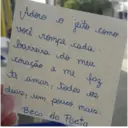 Adoro o jeito como
você rompe cada
barreira do meu
coração e me faz
te amar, todos os
dias, um pouco mais.
Beco do Poeta